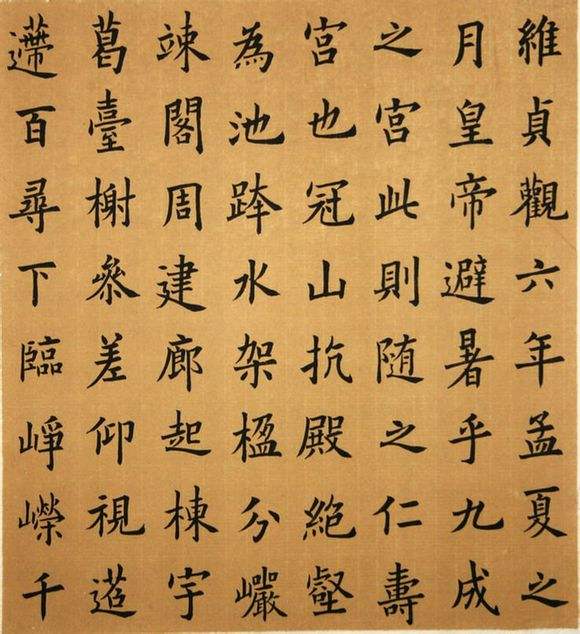 維貞觀六年孟夏之
月皇帝避暑乎九成
之宮此則随之仁壽
宮也冠山抗殿絶壑
為池跨水架楹分巖
竦閣周建廊起棟宇
葛臺榭叅差仰視迢
遰百尋下臨崢嶸千